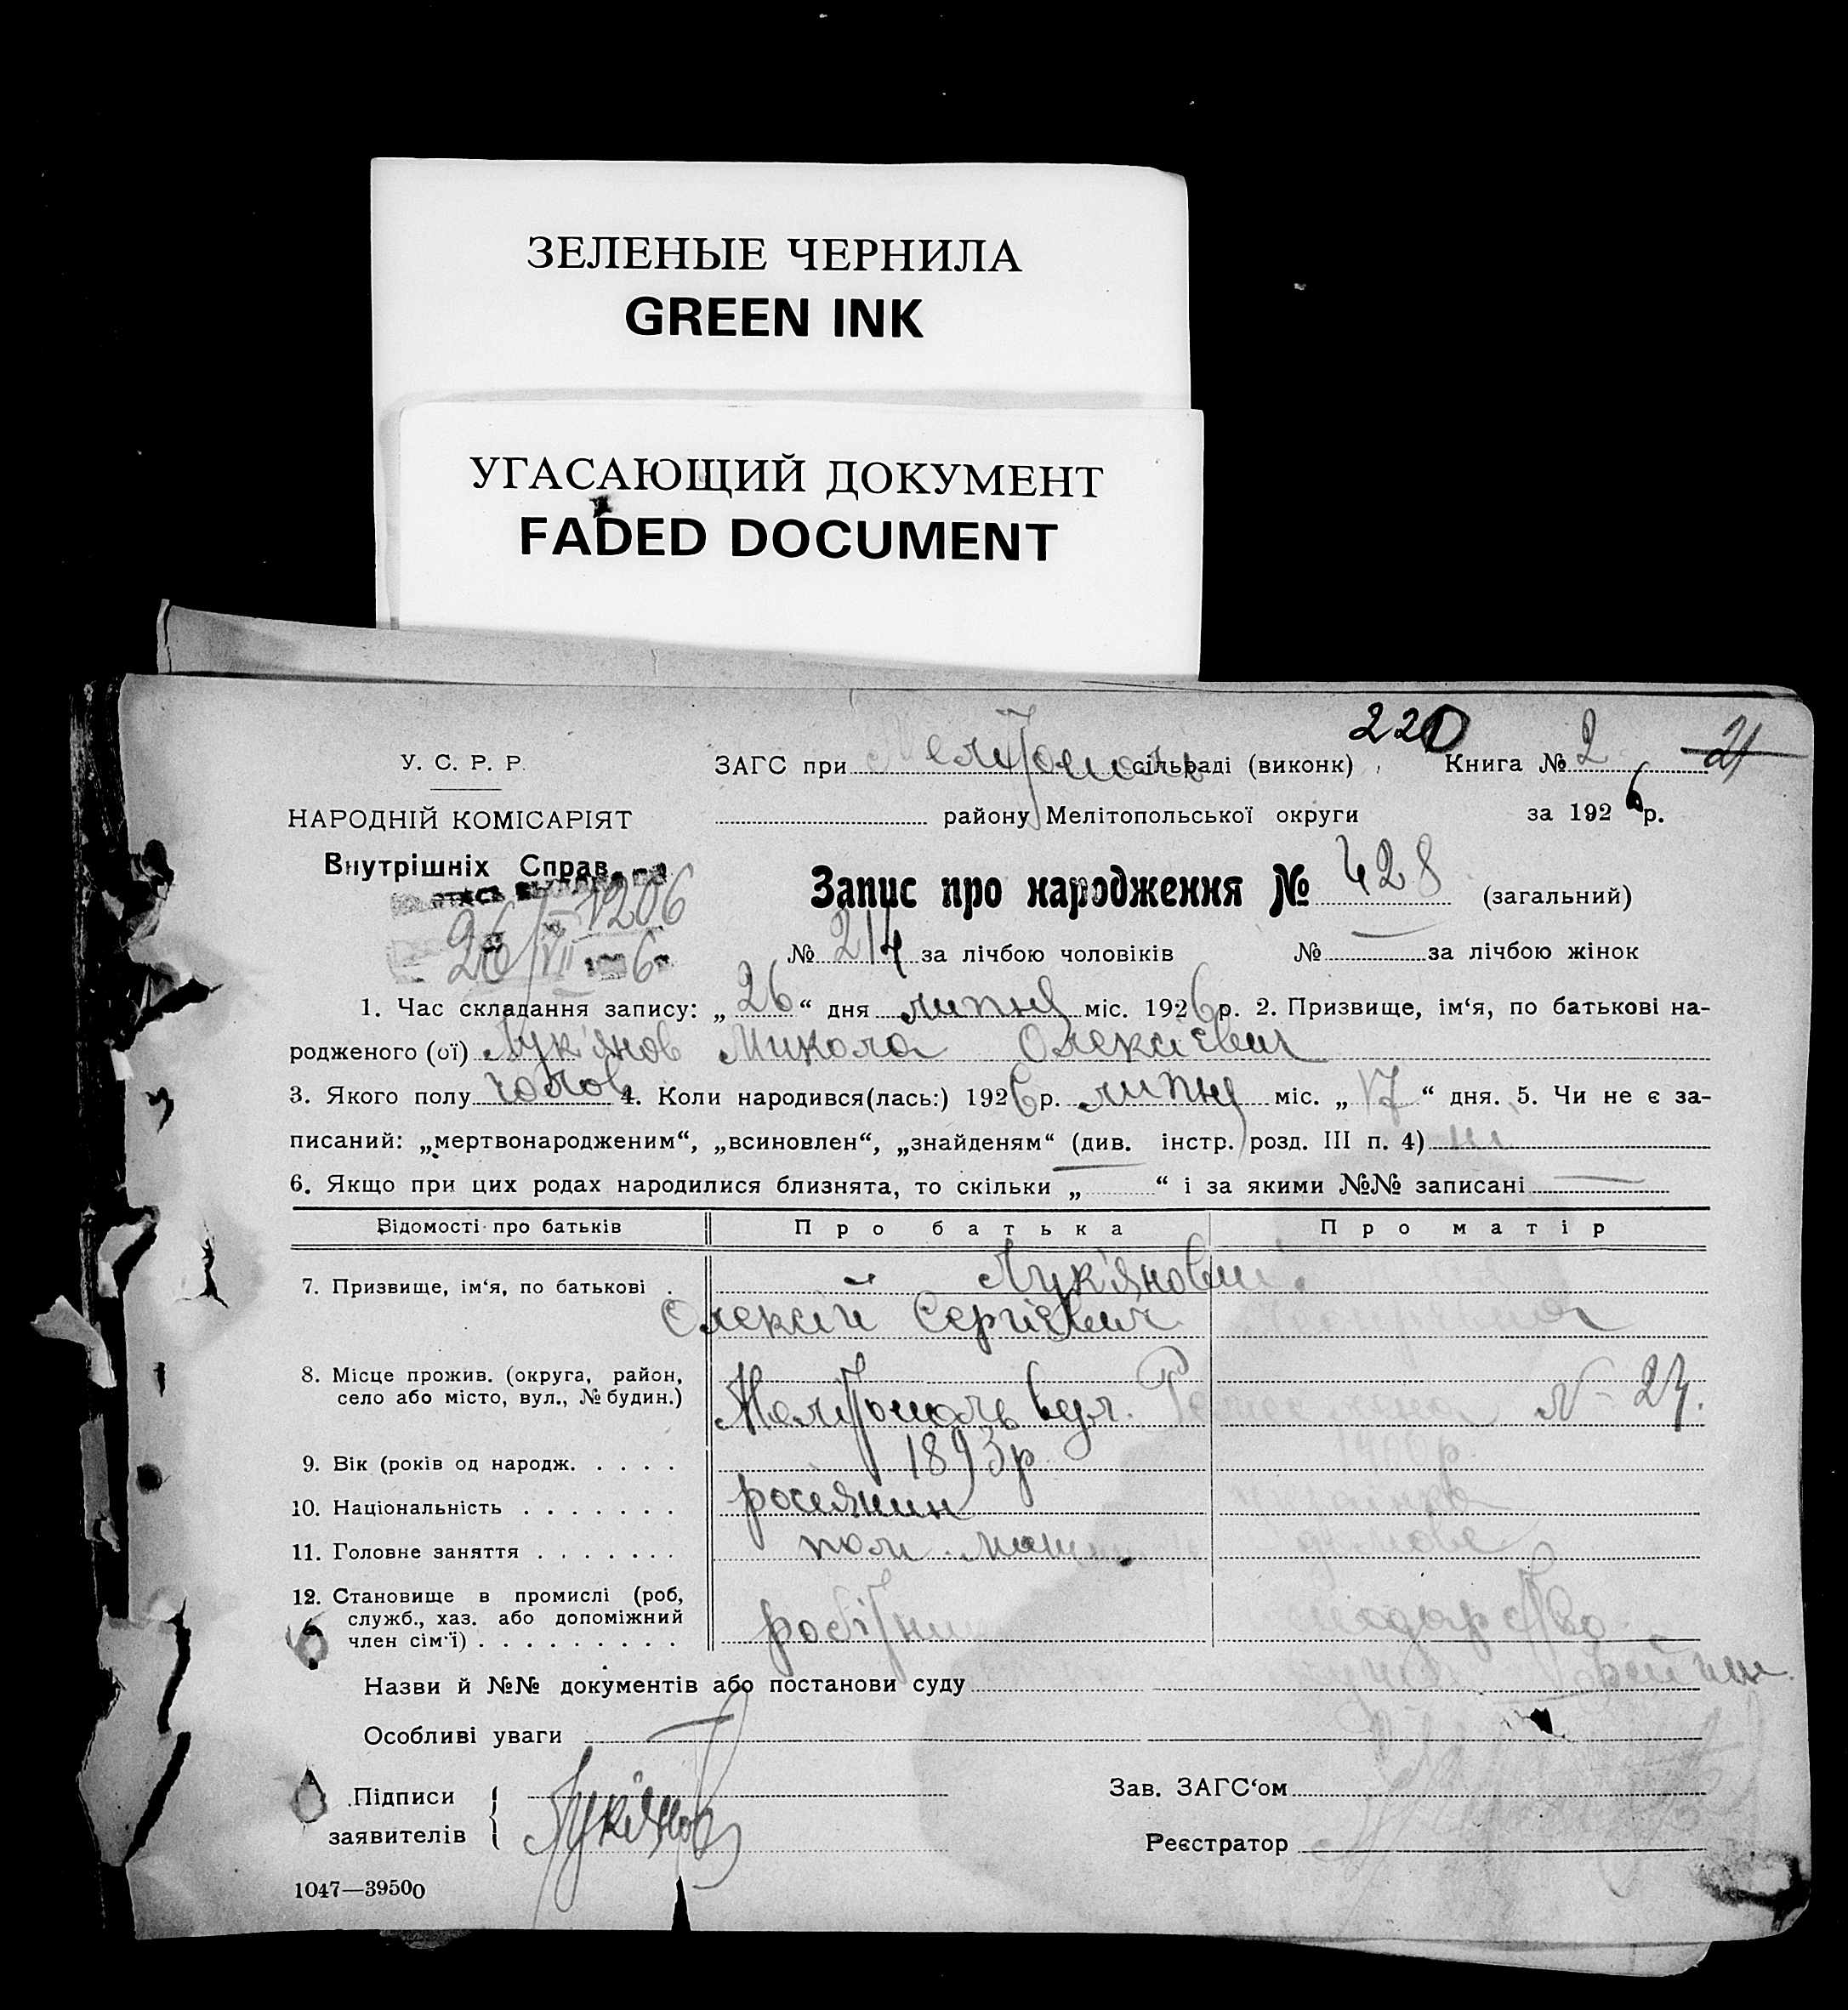 ЗЕЛЕНЫЕ ЧЕРНИЛА
GREEN INK
УГАСАЮЩИЙ ДОКУМЕНТ
FADED DOCUMENT
220
У. С. Р. Р.
ЗАГС при сільраді (виконк) Книга № 2 21
НАРОДНІЙ КОМІСАРІЯТ
району Мелітопольської округи за 1926 р.
Внутрішніх Справ
1206
26/VII 6
Запис про народження № 428 (загальний)
№ 214 за лічбою чоловіків № — за лічбою жінок
1. Час складання запису: „26“ дня липня міс. 1926 р. 2. Призвище, ім‘я, по батькові на-
родженого (ої) Лук'янов Микола Олексієвич
3. Якого полу чолов. 4. Коли народився(лась:) 1926 р. липня міс. „17“ дня. 5. Чи не є за-
писаний: „мертвонародженим“, „всиновлен“, „знайденям“ (див. інстр. розд. III п. 4) ні
6. Якщо при цих родах народилися близнята, то скільки „—“ і за якими №№ записані —
Відомості про батьків Про батька Про матір
7. Призвище, ім‘я, по батькові . Лук'янови
Олексій Сергієвич
8. Місце прожив. (округа, район,
село або місто, вул., № будин.) Мелітополь вул. № 24.
9. Вік (років од народж. . . . . 1893 р.
10. Національність . . . . . . . росіянин українка
11. Головне заняття . . . . . . .
12. Становище в промислі (роб,
служб., хаз. або допоміжний
член сім'ї) . . . . . . . . . робітник
Назви й №№ документів або постанови суду
Особливі уваги —
Підписи
заявителів { Лук'янов
Зав. ЗАГС‘ом
Реєстратор
1047—39500